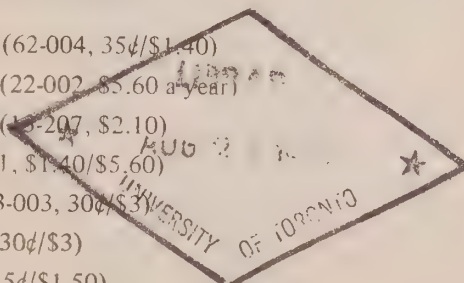 (62-004, 35¢/$1.40)
(22-002, $5.60 a year)
(13-207, $2.10)
, $1.40/$5.60)
-003, 30¢/$3)
30¢/$3)
5¢/$1.50)
AUG
UNIVERSITY OF TORONTO